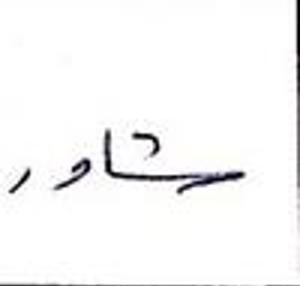 شاور